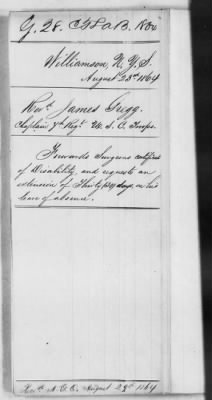 G. 28.
Williamson, N.Y.S.
August 23d 1864
Revd. James Grigg.
Chaplain 7th Regt. U.S.C. Troops.
Forwards Surgeons certificate
of Disability, and requests an
extension of Thirty (30) days on his
leave of absence.
August 28th 1864